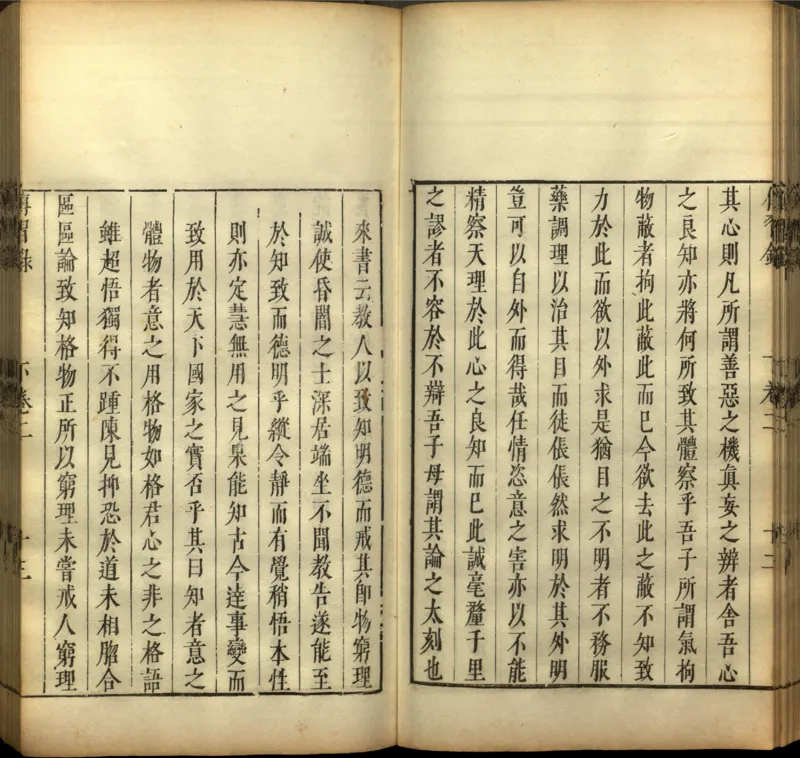 其心則凡所謂善惡之機真妄之辨者舍吾心
之良知亦將何所致其體察乎吾子所謂氣拘
物蔽者拘此蔽此而已今欲去此之蔽不知致
力於此而欲以外求是猶目之不明者不務服
藥調理以治其目而徒倀倀然求明於其外明
豈可以自外而得哉任情恣意之害亦以不能
精察天理於此心之良知而已此誠毫釐千里
之謬者不容於不辯吾子毋謂其論之太刻也
來書云教人以致知明德而戒其即物窮理
誠使昏闇之士深居端坐不聞教告遂能至
於知致而德明乎縱令靜而有覺稍悟本性
則亦定慧無用之見果能知古今達事變而
致用於天下國家之實否乎其曰知者意之
體物者意之用格物如格君心之非之格語
雖超悟獨得不踵陳見抑恐於道未相脗合
區區論致知格物正所以窮理未嘗戒人窮理
傳習錄 卷二 十二
傳習錄 下卷二 十三